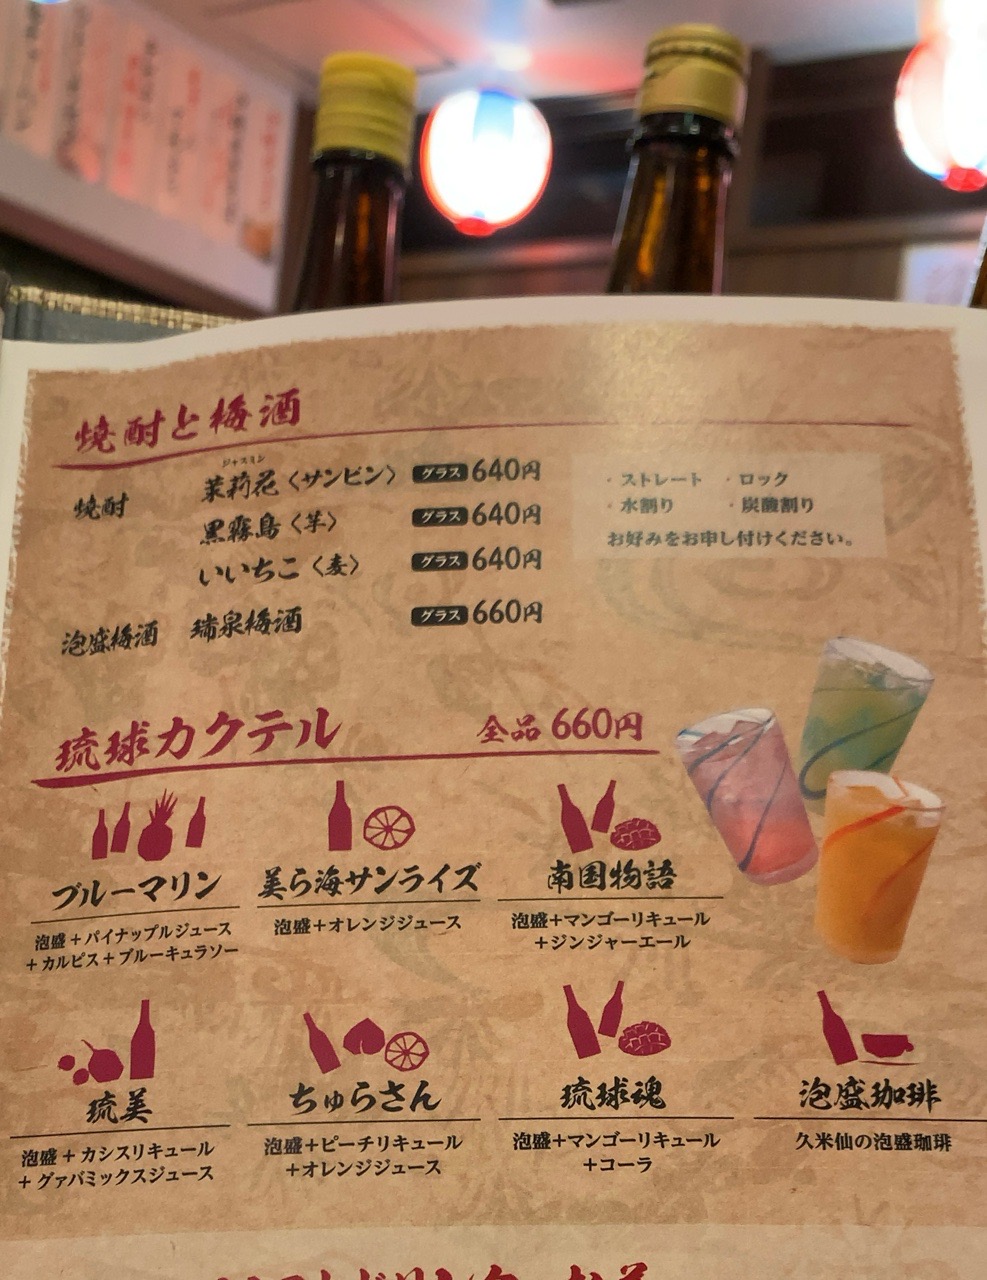 焼酎と梅酒
焼酎
ジャスミン
茉莉花〈サンピン〉 グラス 640円
黒霧島〈芋〉 グラス 640円
いいちこ〈麦〉 グラス 640円
泡盛梅酒 瑞泉梅酒 グラス 660円
・ストレート ・ロック
・水割り ・炭酸割り
お好みをお申し付けください。
琉球カクテル 全品 660円
ブルーマリン
泡盛+パイナップルジュース
+カルピス+ブルーキュラソー
美ら海サンライズ
泡盛+オレンジジュース
南国物語
泡盛+マンゴーリキュール
+ジンジャーエール
琉美
泡盛+カシスリキュール
+グァバミックスジュース
ちゅらさん
泡盛+ピーチリキュール
+オレンジジュース
琉球魂
泡盛+マンゴーリキュール
+コーラ
泡盛珈琲
久米仙の泡盛珈琲